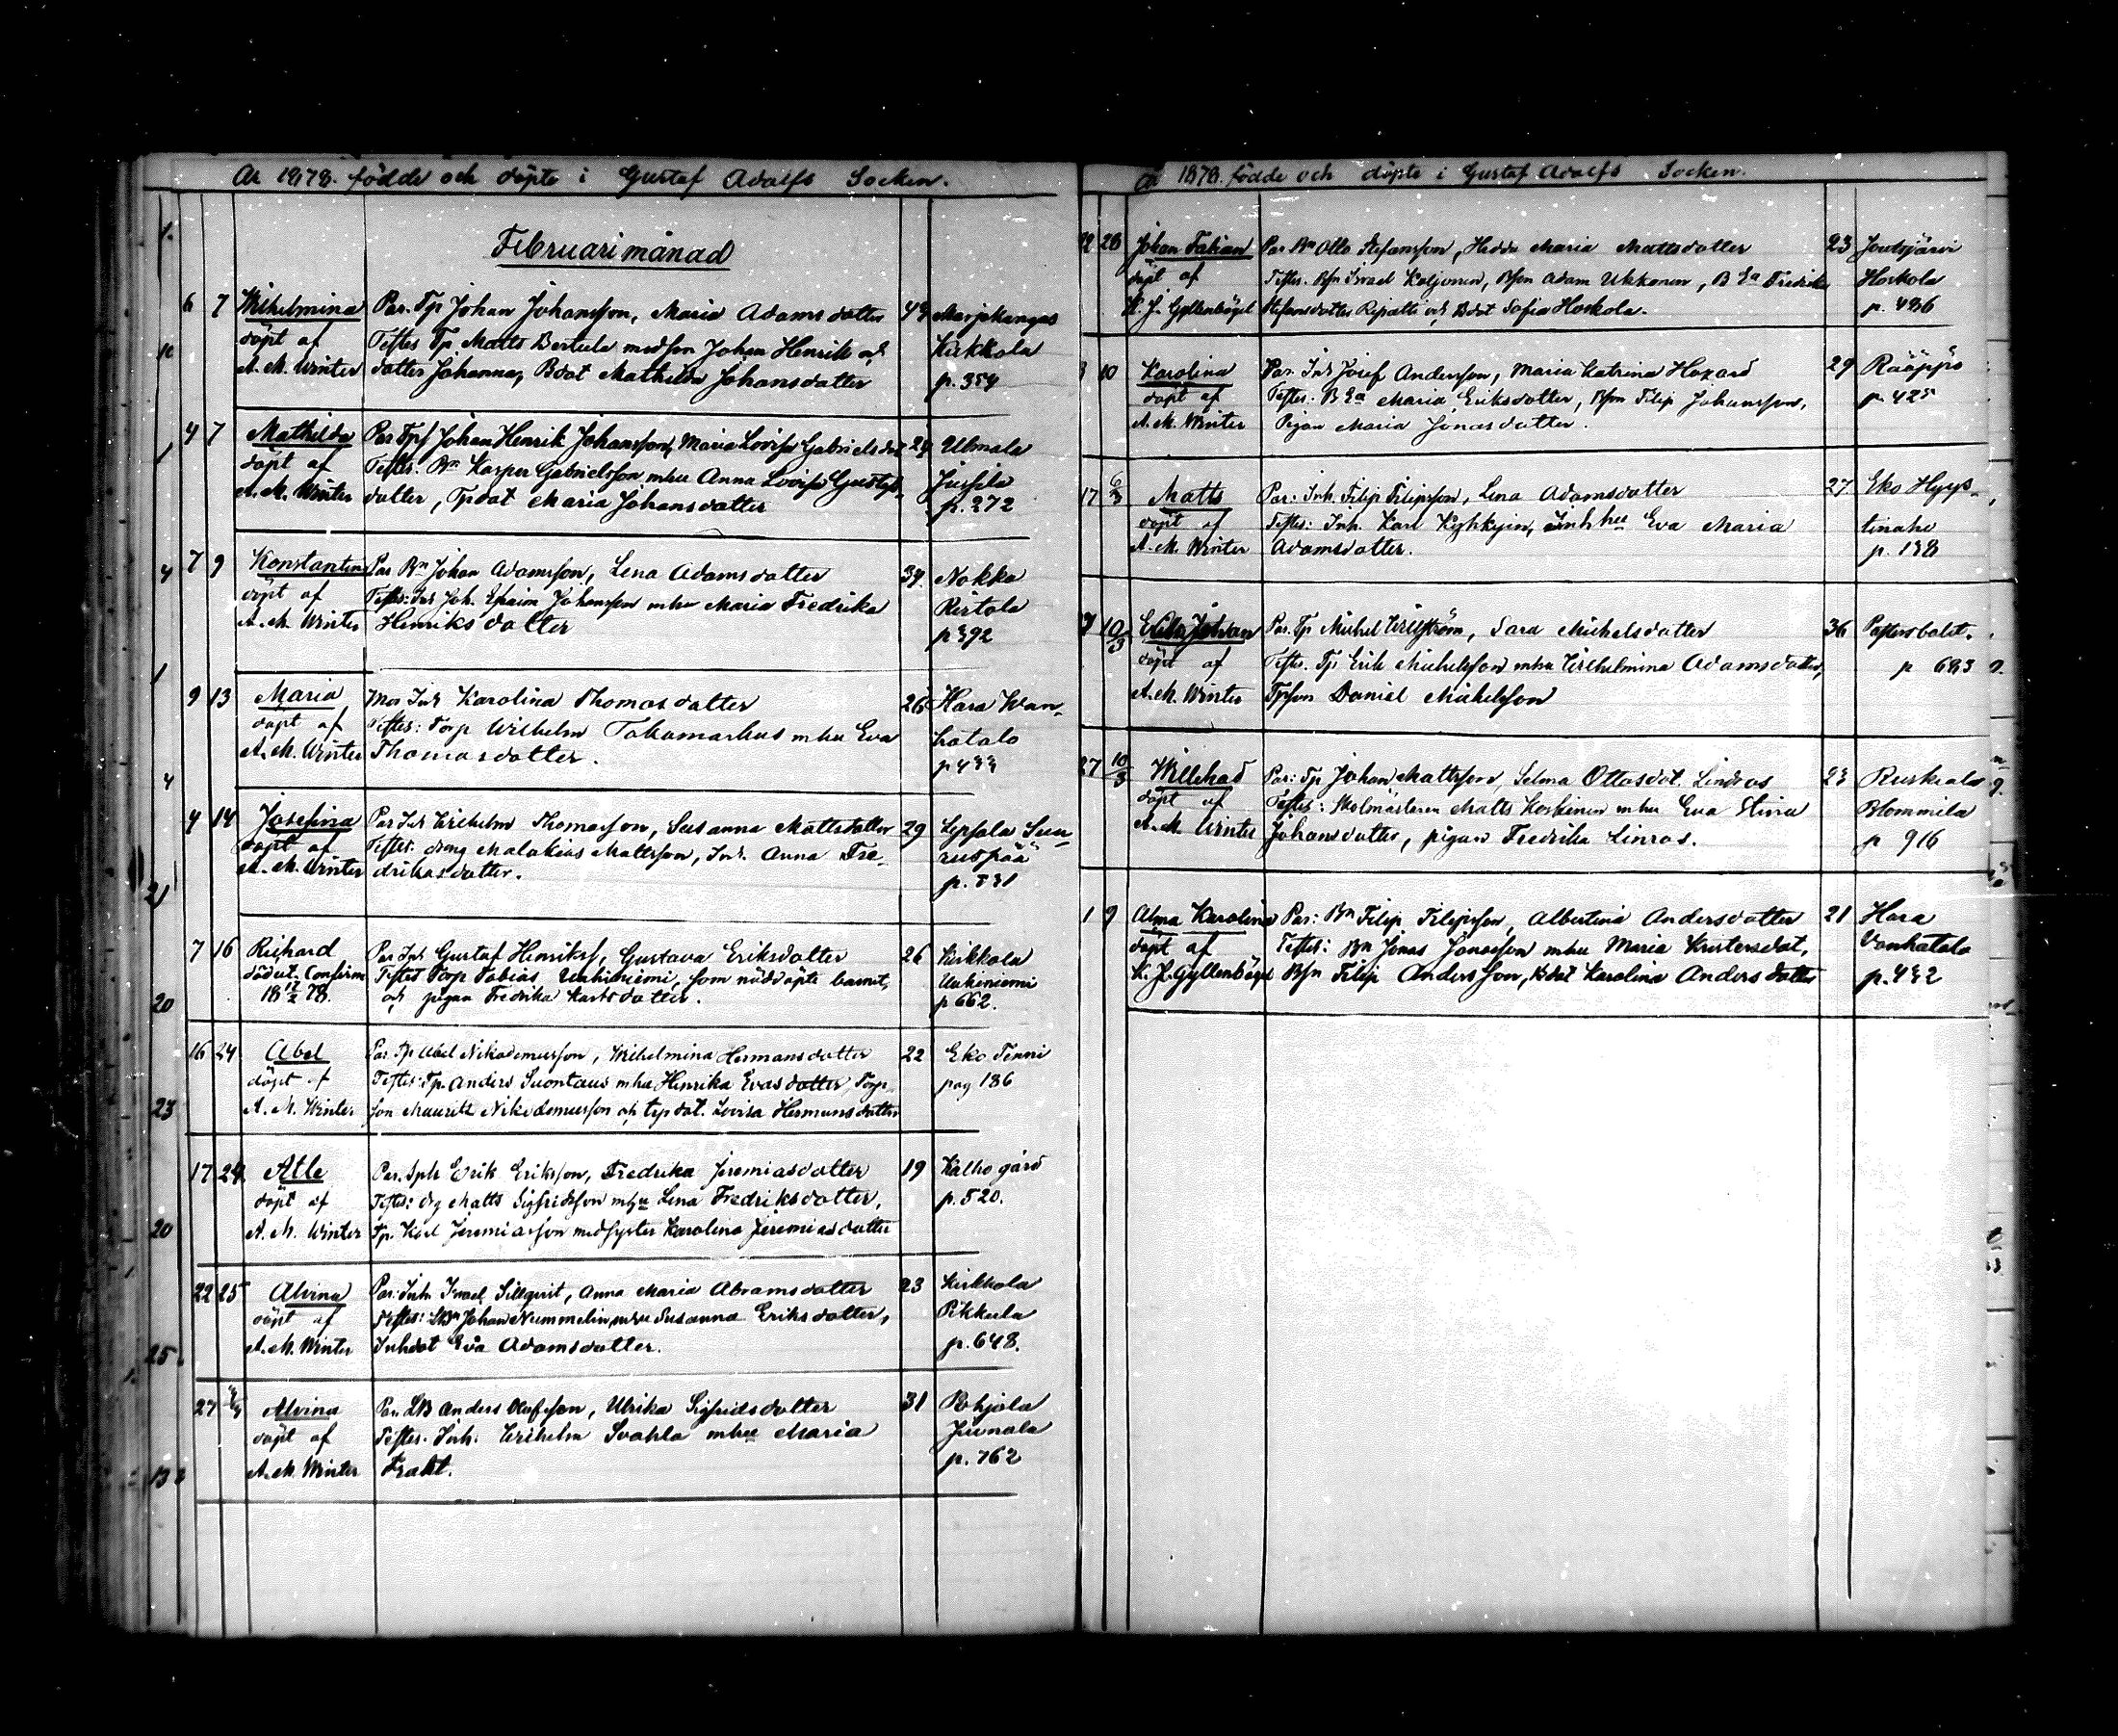 År 1878. födde och döpte i Gustaf Adolfs Socken.
Februari månad
6 7 Wilhelmina Par. Tp Johan Johansson, Maria Adamsdotter 43 Marjokangas
döpt af Testes Tp Matts Bertula med son Johan Henrik och Kirkkola
A. M. Winter dotter Johanna, Bdot Mathilda Johansdotter p. 354
4 7 Mathilda Par Johan Henrik Johansson, Maria Lovisa Gabrielsdot 29 Ulmala
döpt af Testes. Bn Kasper Gabrielsson mhu Anna Lovisa Jussila
A. M. Winter dotter, Tpdot Maria Johansdotter p. 272
7 9 Konstantin Par Bn Johan Adamsson, Lena Adamsdotter 37. Nokka
döpt af Testes: Joh. Efraim Johansson mhu Maria Fredrika
A. M. Winter Henriksdotter p 392
9 13 Maria Mor Inh Karolina Thomasdotter 26 Hara Wan-
döpt af Testes: Torp Wilhelm Tokamarkus mhu Eva hatalo
A. M. Winter Thomasdotter. p 433
4 14 Josefina Par Inh Wilhelm Thomasson, Susanna Mattsdotter 29
döpt af Testes: dreng Malakias Mattsson, Inh. Anna Fre- ruspää
A. M. Winter driksdotter. p. 531
7 16 Richard Par Inh Gustaf Henrikss, Gustava Eriksdotter 26 Kirkkola
död ut. Confirm Testes Torp Tobias Uukiniemi, som nöddöpte barnet, Uukiniemi
18 17/2 78. och pigan Fredrika Karlsdotter. p 662.
16 24 Abel Par. Tp Abel Nikodemusson, Wilhelmina Hermansdotter 22 Eko Tenni
döpt af Testes: Tp. Anders Suontaus mhu Henrika Evasdotter, Torp- pag 186
A. M. Winter son Maurits Nikodemusson och tpdot. Lovisa Hermansdotter
17 24 Atle Par. Erik Eriksson, Fredrika Jeremiasdotter 19 Kalho gård
döpt af Testes: drg Matts Sigfridsson mhu Lena Fredriksdotter, p. 520.
A. M. Winter Tp. Karl Jeremiasson med syster Karolina Jeremiasdotter
22 25 Alvina Par: Inh Israel Sillqvist, Anna Maria Abramsdotter 23 Kirkkola
döpt af Testes: LBn Johan Nummelin mhu Susanna Eriksdotter, Pikkula
A. M. Winter Inhdot Eva Adamsdotter. p. 648.
27 Alvina Par. LB Anders Olofsson, Ulrika Sigfridsdotter 31 Pohjola
döpt af Testes. Inh. Wilhelm Svahla mhu Maria Junnala
A. M. Winter Frakt. p. 762
År 1878. födde och döpte i Gustaf Adolfs Socken.
22 28 Johan Fabian Par Bn Otto Stefansson, Hedda Maria Mattsdotter 23 Joutsjärvi
döpt af Testes. Bsn Israel Koljonen, Bsn Adam Ukkonen, B Ea Fredrika Hoskola
K. J. Gyllenbögel Stefansdotter och Bdot Sofia Hoskola. p. 486
10 Karolina Par Inh Josef Andersson, Maria Katrina Hoxard 29 Rääppö
döpt af Testes: B Ea Maria Eriksdotter, Bsn Filip Johansson, p. 425
A. M. Winter Pigan Maria Jonasdotter.
17 6/3 Matts Par: Inh. Filip Filipsson, Lena Adamsdotter 27 Eko Hyys-
döpt af Testes: Inh. Karl Kyhkyin, Inhhu Eva Maria tinaho
A. M. Winter Adamsdotter. p. 188
10/3 Johan Par. Tp Michel Willström, Sara Michelsdotter 36
döpt af Testes. Tp Erik Michelsson mhu Wilhelmina Adamsdotter, p 683
A. M. Winter Tpson Daniel Michelsson
27 10/3 Willehad Par: Tp Johan Mattsson, Selma Ottosdot. Lindros 23 Ruskiala
döpt af Testes: Skolmästaren Matts Koskinen mhu Eva Stina Blommila
A. M. Winter Johansdotter, pigan Fredrika Linros. p 916
1 9 Alma Karolina Par: Bn Filip Filipsson, Albertina Andersdotter 21 Hara
döpt af Testes: Bn Jonas Jonasson mhu Maria Kristersdot, Vanhatalo
K. J. Gyllenbögel Bsn Filip Andersson, Bdot Karolina Andersdotter p. 432